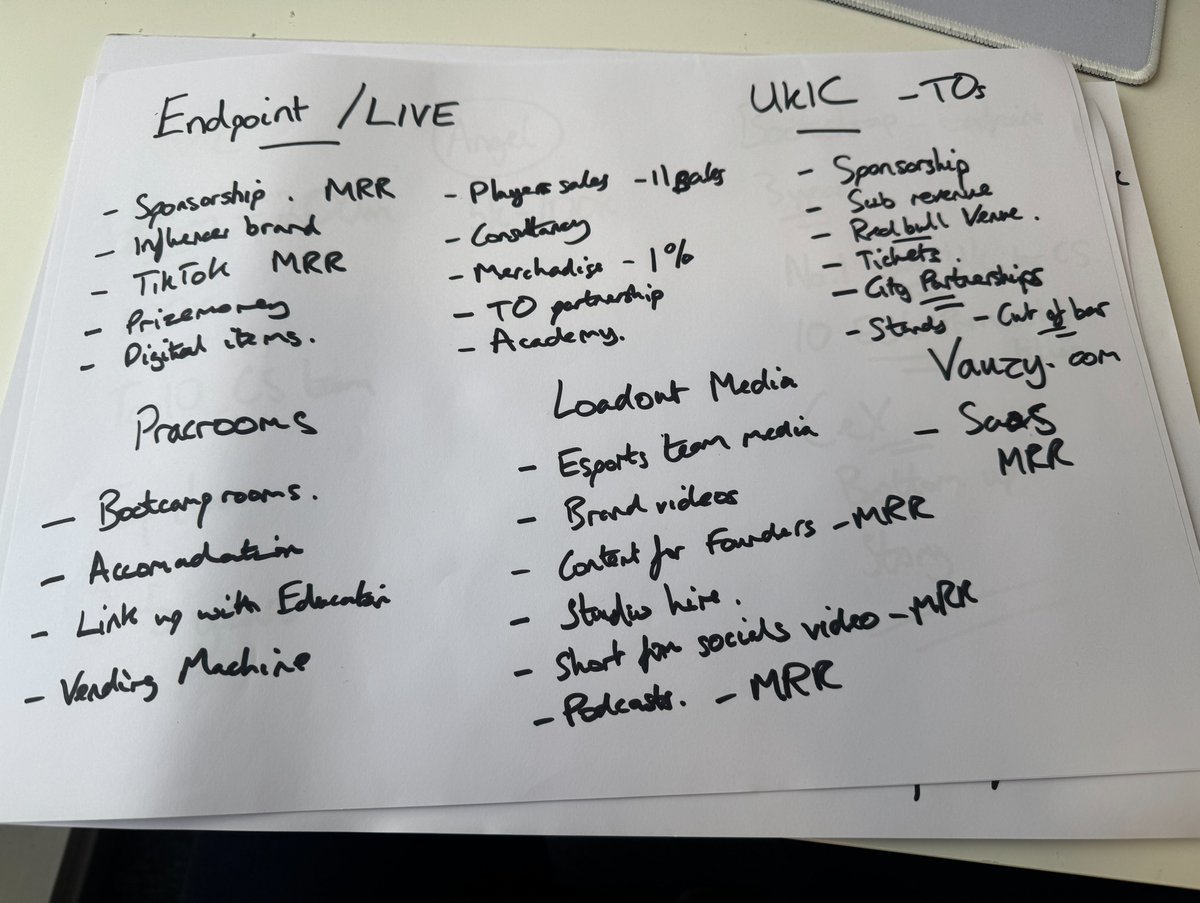 Endpoint / LIVE
- Sponsorship. MRR
- Influencer brand
- TikTok MRR
- Prizemoney
- Digital items.
- Players sales - 11
- Consultancy
- Merchadise - 1%
- TO partnership
- Academy.
UKIC - TOs
- Sponsorship
- Sub revenue
- Redbull Venue.
- Tickets.
- City Partnerships
- Stands - Cut of bar
Pracrooms
- Bootcamp rooms.
- Accomadation
- Link up with Education
- Vending Machine
Loadout Media
- Esports team media
- Brand videos
- Content for Founders - MRR
- Studio hire.
- Short form socials video - MRR
- Podcasts. - MRR
Vauzy.com
- SaaS
MRR
Angel